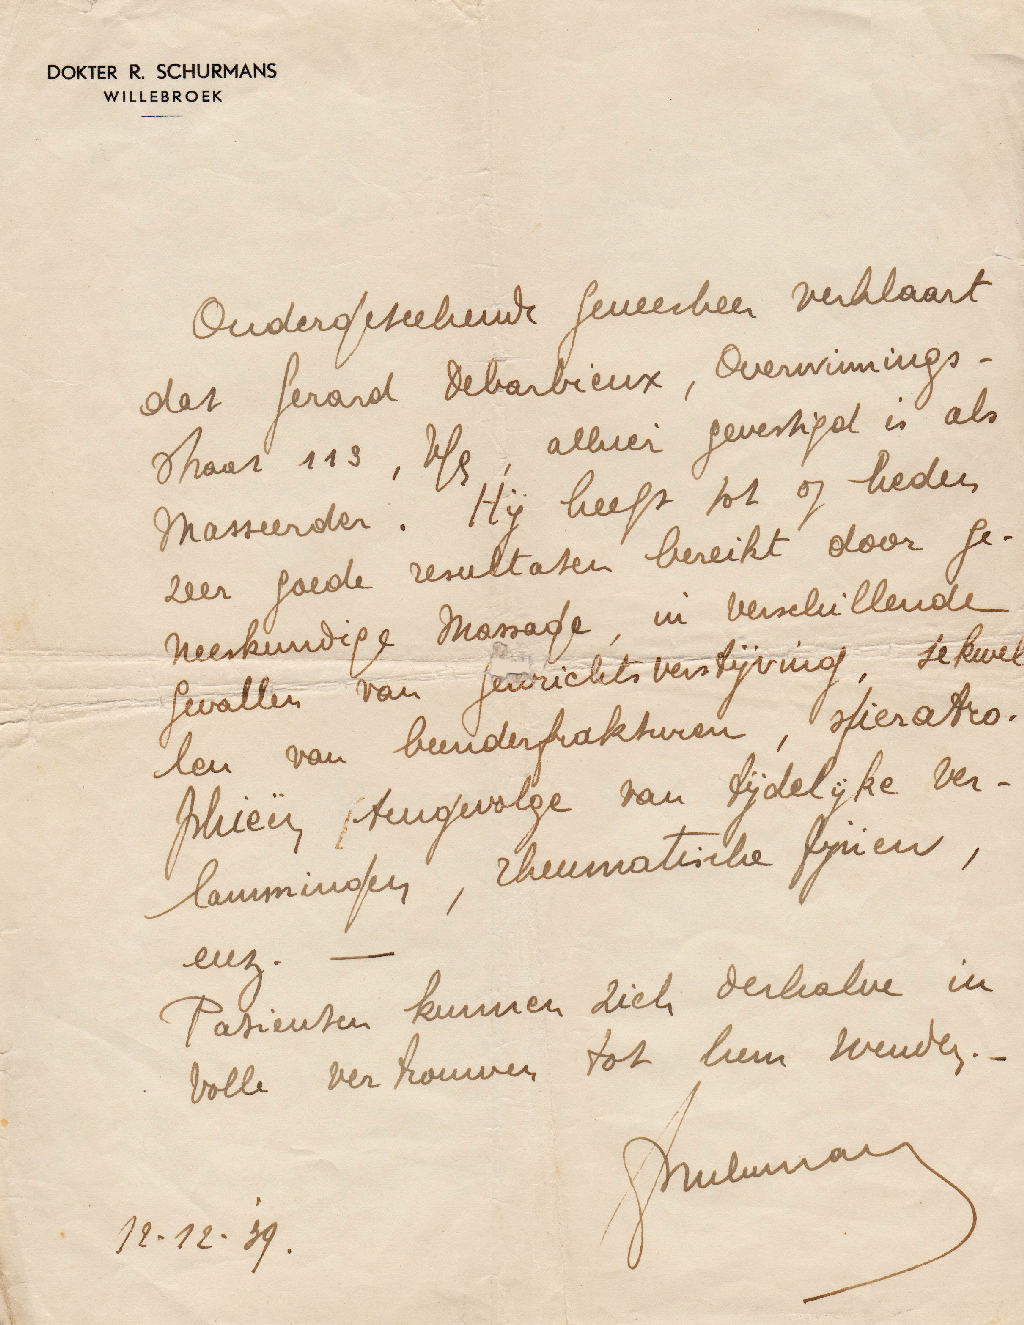 DOKTER R. SCHURMANS
WILLEBROEK
Ondergeteekende geneesheer verklaart
dat Gerard Debarbieux, Overwinnings-
straat 113, alhier gevestigd is als
Masseerder. Hij heeft tot op heden
zeer goede resultaten bereikt door ge-
neeskundige Massage, in verschillende
gevallen van gewrichtsverstijving, sekwel
len van beenderfrakturen, spieratro-
phieën, tengevolge van tijdelijke ver-
lammingen, rheumatische pijnen,
enz. —
Patienten kunnen zich derhalve in
volle vertrouwen tot hem wenden.-
Schurmans
12-12-'39.